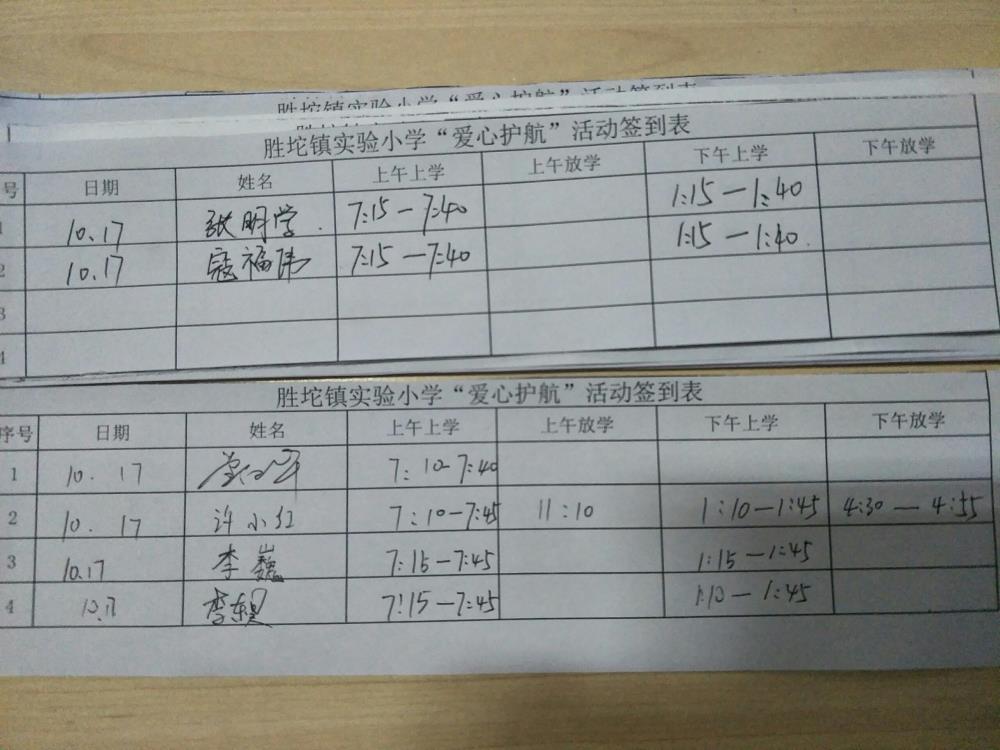 胜坨镇实验小学“爱心护航”活动签到表
胜坨镇实验小学“爱心护航”活动签到表
号 日期 姓名 上午上学 上午放学 下午上学 下午放学
1 10.17 张明学 7:15-7:40 1:15-1:40
2 10.17 寇福伟 7:15-7:40 1:15-1:40
3
4
胜坨镇实验小学“爱心护航”活动签到表
序号 日期 姓名 上午上学 上午放学 下午上学 下午放学
1 10.17 7:10-7:40
2 10.17 许小红 7:10-7:45 11:10 1:10-1:45 4:30-4:55
3 10.17 李巍 7:15-7:45 1:15-1:45
4 10.17 7:15-7:45 1:10-1:45